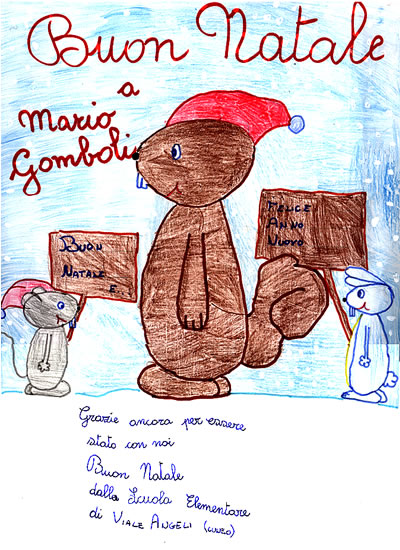 Buon Natale
a
Mario
Gomboli
Buon
Natale
E
Felice
Anno
Nuovo
Grazie ancora per essere
stato con noi
Buon Natale
dalla Scuola Elementare
di Viale Angeli (Cuneo)